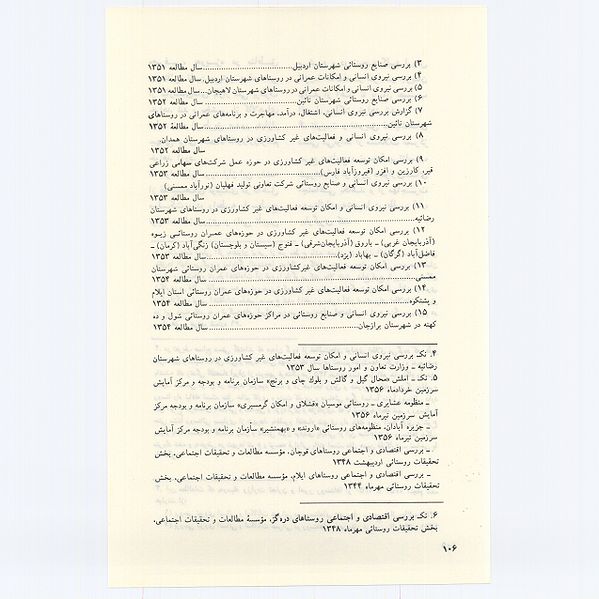 ۳) بررسی صنایع روستائی شهرستان اردبیل ........ سال مطالعه ۱۳۵۱
۴) بررسی نیروی انسانی و امکانات عمرانی در روستاهای شهرستان اردبیل. سال مطالعه ۱۳۵۱
۵) بررسی نیروی انسانی و امکانات عمرانی در روستاهای شهرستان لاهیجان... سال مطالعه ۱۳۵۱
۶) بررسی صنایع روستائی شهرستان نائین ........ سال مطالعه ۱۳۵۲
۷) گزارش بررسی نیروی انسانی، اشتغال، درآمد، مهاجرت و برنامه‌های عمرانی در روستاهای
شهرستان نائین ........ سال مطالعه ۱۳۵۲
۸) بررسی نیروی انسانی و فعالیت‌های غیر کشاورزی در روستاهای شهرستان همدان.
سال مطالعه ۱۳۵۲
۹) بررسی امکان توسعه فعالیت‌های غیر کشاورزی در حوزه عمل شرکت‌های سهامی زراعی
قیر، کارزین و افزر (فیروزآباد فارس) ........ سال مطالعه ۱۳۵۳
۱۰) بررسی نیروی انسانی و صنایع روستائی شرکت تعاونی تولید فهلیان (نورآباد ممسنی)
سال مطالعه ۱۳۵۳
۱۱) بررسی نیروی انسانی و امکان توسعه فعالیت‌های غیر کشاورزی در روستاهای شهرستان
رضائیه ........ سال مطالعه ۱۳۵۳
۱۲) بررسی امکان توسعه فعالیت‌های غیر کشاورزی در حوزه‌های عمران روستائی زیوه
(آذربایجان غربی) ـ باروق (آذربایجان‌شرقی) ـ فنوج (سیستان و بلوچستان) زنگی‌آباد (کرمان) ـ
فاضل‌آباد (گرگان) ـ بهاباد (یزد) ........ سال مطالعه ۱۳۵۳
۱۳) بررسی امکان توسعه فعالیت‌های غیرکشاورزی در حوزه‌های عمران روستائی شهرستان
ممسنی ........ سال مطالعه ۱۳۵۴
۱۴) بررسی امکان توسعه فعالیت‌های غیر کشاورزی در حوزه‌های عمران روستائی استان ایلام
و پشتکوه ........ سال مطالعه ۱۳۵۴
۱۵) بررسی نیروی انسانی و صنایع روستائی در مراکز حوزه‌های عمران روستائی شول و ده
کهنه در شهرستان برازجان ........ سال مطالعه ۱۳۵۴
۴. نک بررسی نیروی انسانی و امکان توسعه فعالیت‌های غیر کشاورزی در روستاهای شهرستان
رضائیه ـ وزارت تعاون و امور روستاها سال ۱۳۵۳
۵. نک ـ املش «محال گیل و گالش و بلوک چای و برنج» سازمان برنامه و بودجه و مرکز آمایش
سرزمین خردادماه ۱۳۵۶
ـ منظومه عشایری ـ روستائی موسیان «قشلاق و امکان گرمسیری» سازمان برنامه و بودجه مرکز
آمایش سرزمین تیرماه ۱۳۵۶
ـ جزیره آبادان، منظومه‌های روستائی «اروند» و «بهمنشیر» سازمان برنامه و بودجه مرکز آمایش
سرزمین تیرماه ۱۳۵۶
ـ بررسی اقتصادی و اجتماعی روستاهای قوچان، مؤسسه مطالعات و تحقیقات اجتماعی، بخش
تحقیقات روستائی اردیبهشت ۱۳۴۸
ـ بررسی اقتصادی و اجتماعی روستاهای ایلام، مؤسسه مطالعات و تحقیقات اجتماعی، بخش
تحقیقات روستائی مهرماه ۱۳۴۴
۶. نک بررسی اقتصادی و اجتماعی روستاهای دره‌گز، مؤسسهٔ مطالعات و تحقیقات اجتماعی،
بخش تحقیقات روستائی مهرماه ۱۳۴۸
۱۰۶